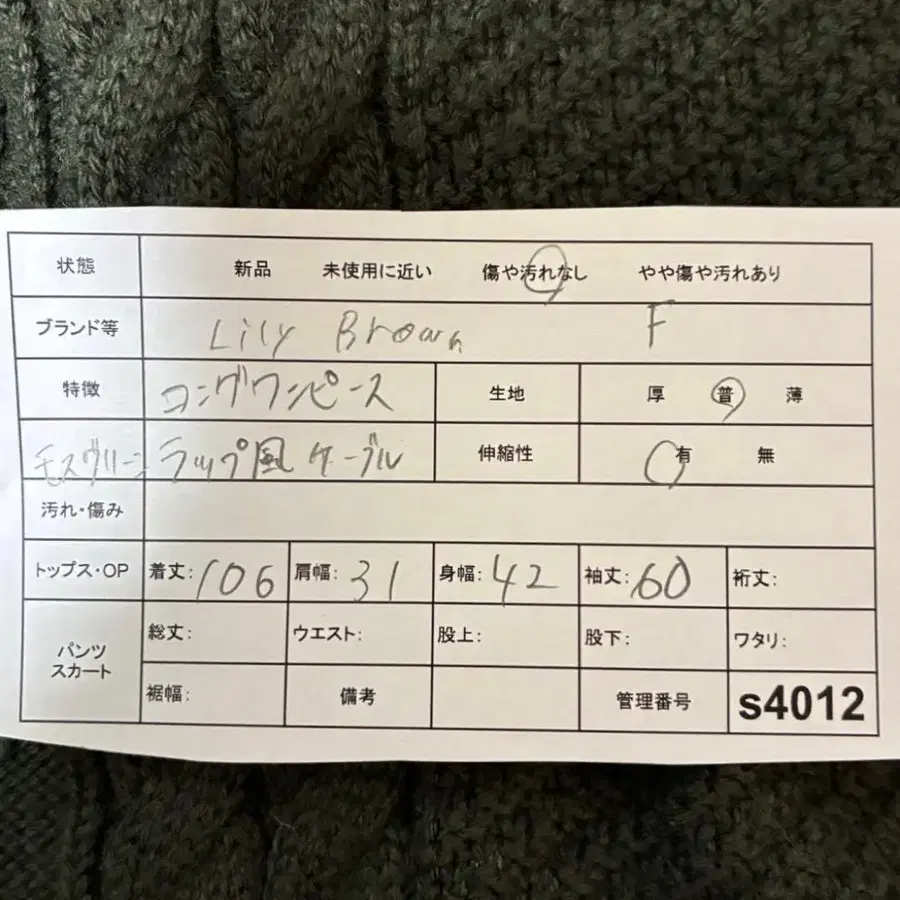 状態 新品 未使用に近い 傷や汚れなし やや傷や汚れあり
ブランド等 Lily Brown F
特徴 ロングワンピース 生地 厚 普 薄
モスグリーン ラップ風ケーブル 伸縮性 有 無
汚れ・傷み
トップス・OP 着丈:106 肩幅:31 身幅:42 袖丈:60 裄丈:
パンツ スカート 総丈: ウエスト: 股上: 股下: ワタリ:
裾幅: 備考 管理番号 s4012